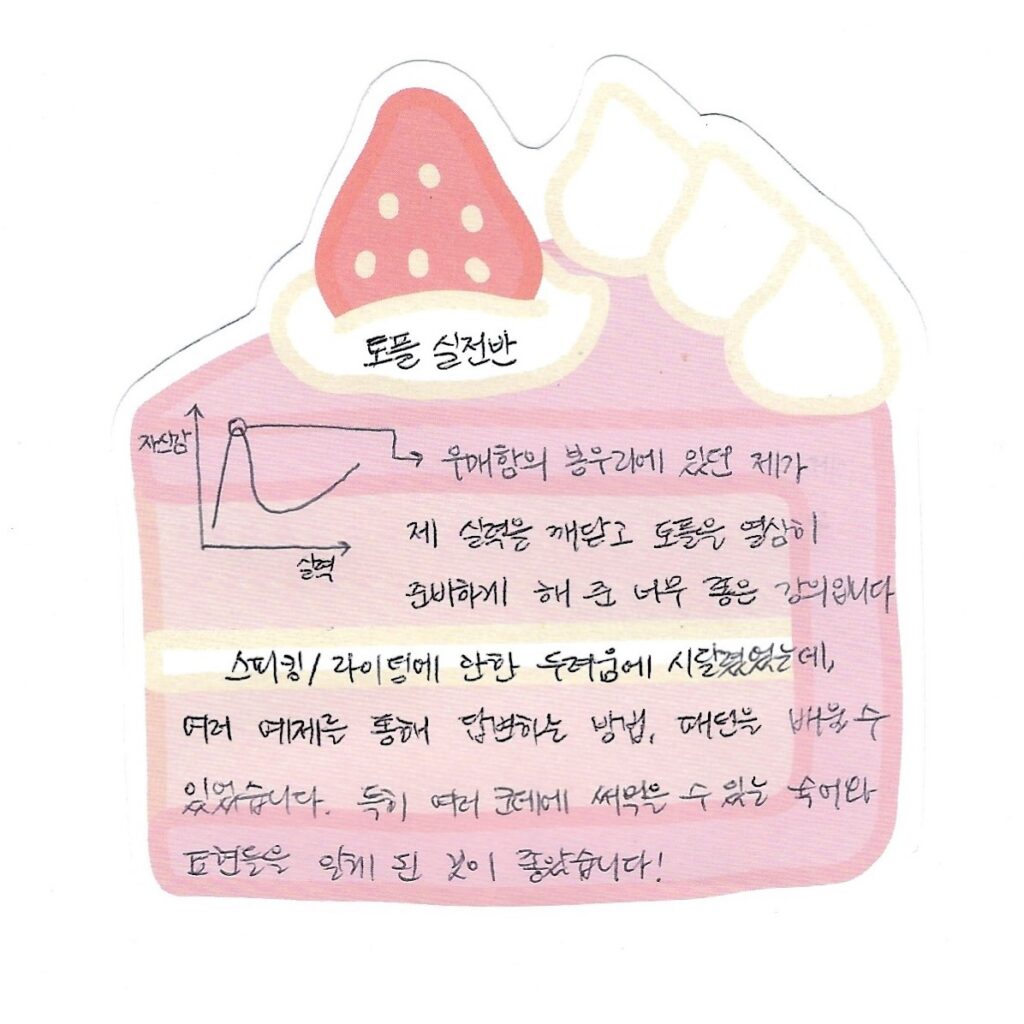 토플 실전반
자신감
우매함의 봉우리에 있던 제가
제 실력을 깨닫고 토플을 열심히
실력
준비하게 해 준 너무 좋은 강의입니다
스피킹/라이팅에 관한 두려움에 시달렸었는데,
여러 예제를 통해 답변하는 방법, 패턴을 배울 수
있었습니다. 특히 여러 군데에 써먹을 수 있는 숙어와
표현들을 알게 된 것이 좋았습니다!